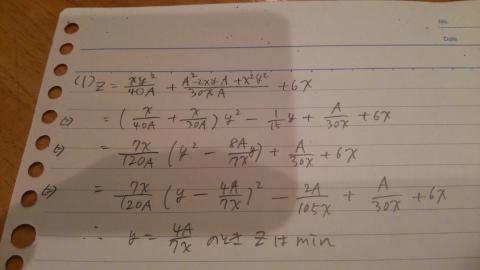 No.
Date
(1) z = xy²/40A + (A²-2xyA+x²y²)/30xA + 6x
(⇔) = (x/40A + x/30A) y² - 1/15 y + A/30x + 6x
(⇔) = 7x/120A (y² - 8A/7x y) + A/30x + 6x
(⇔) = 7x/120A (y - 4A/7x)² - 2A/105x + A/30x + 6x
∴ y = 4A/7x のとき z は min